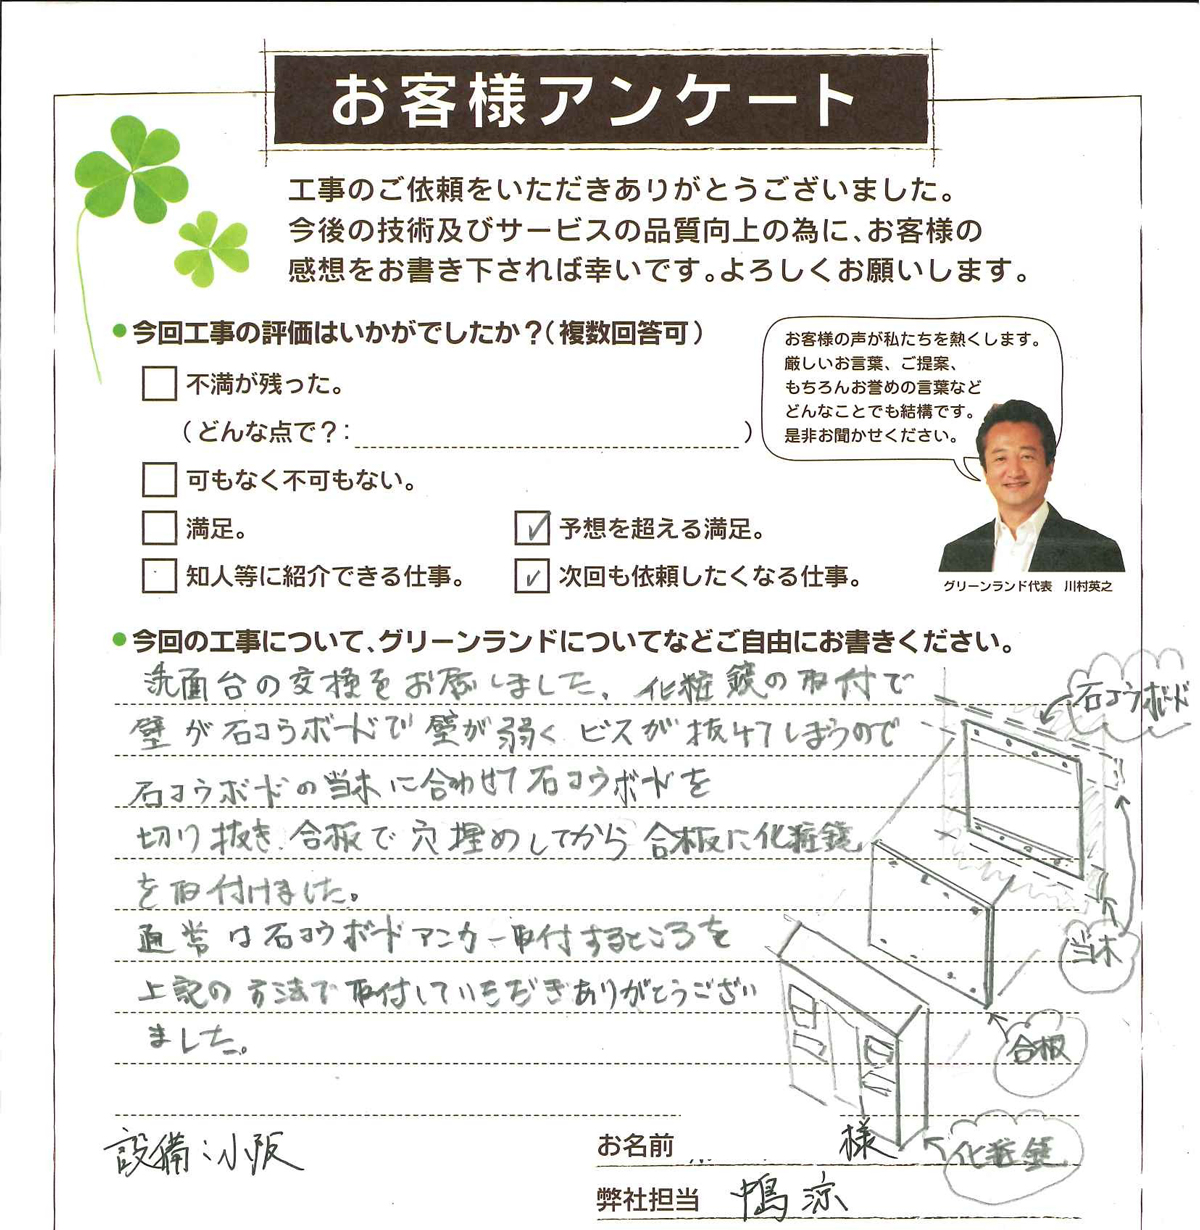 お客様アンケート
工事のご依頼をいただきありがとうございました。
今後の技術及びサービスの品質向上の為に、お客様の
感想をお書き下されば幸いです。よろしくお願いします。
●今回工事の評価はいかがでしたか？（複数回答可）
お客様の声が私たちを熱くします。
厳しいお言葉、ご提案、
もちろんお誉めの言葉など
どんなことでも結構です。
是非お聞かせください。
不満が残った。
（どんな点で？：　）
可もなく不可もない。
満足。
✓ 予想を超える満足。
知人等に紹介できる仕事。
✓ 次回も依頼したくなる仕事。
グリーンランド代表　川村英之
●今回の工事について、グリーンランドについてなどご自由にお書きください。
洗面台の交換をお願しました。化粧鏡の取付で
壁が石コうボードで壁が弱くビスが抜けてしまうので
石コウボードの当木に合わせて石コウボードを
切り抜き合板で穴埋めしてから合板に化粧鏡
を取付けました。
通常は石コウボードアンカー取付するところを
上記の方法で取付していただきありがとうござい
ました。
石コウボード
当木
合板
化粧鏡
設備：小阪
お名前　様
弊社担当　鴨 涼